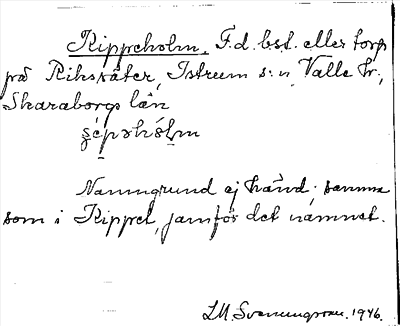 Kippeholm. F.d. bst. eller torp
på Riksäter, Istrum s:n, Valle hr.,
Skaraborgs län

Namngrund ej känd; samma
som i Kippel, jämför det namnet.
L.M. Svanungson. 1946.